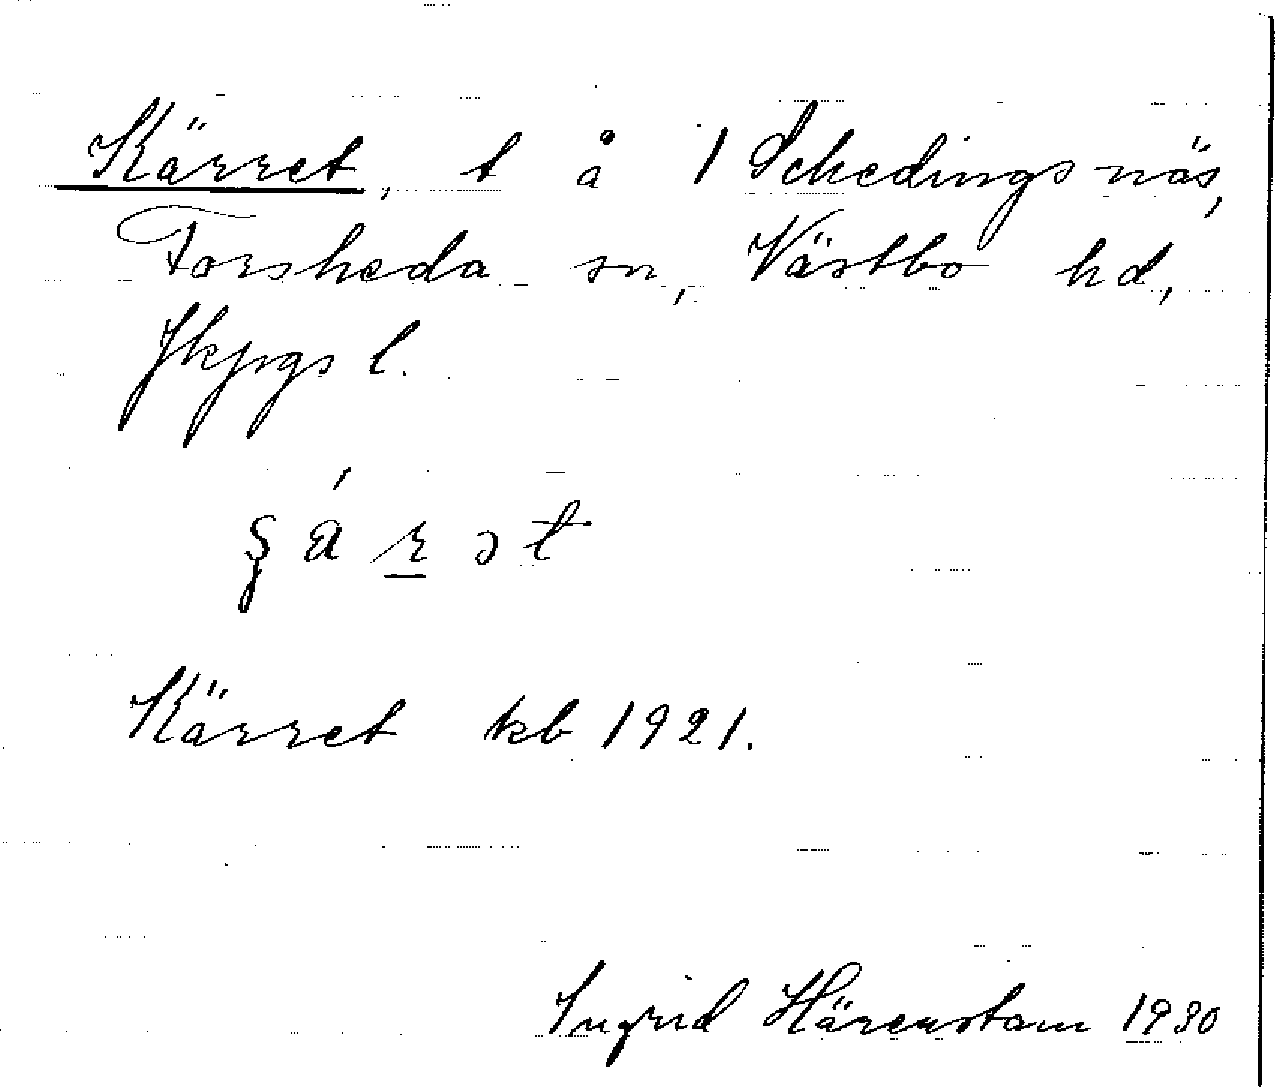 Kärret, t å 1 Schedingsnäs,
Torsheda sn, Västbo hd,
Jkpgs l.
Kärret kb 1921.
Ingrid Härenstam 1930